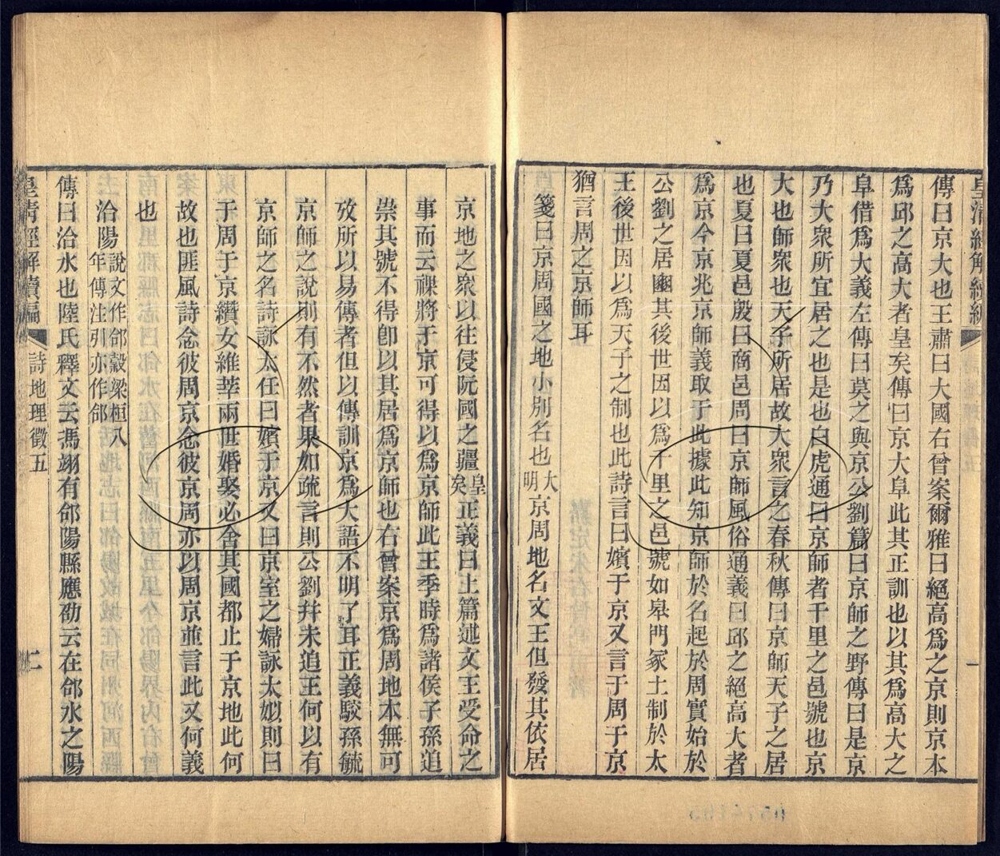 皇清經解續編
傳曰京大也王肅曰大國右曾案爾雅曰絕高為之京則京本
為邱之高大者皇矣傳曰京大阜此其正訓也以其為高大之
阜借為大義左傳曰莫之與京公劉篇曰京師之野傳曰是京
乃大眾所宜居之也是也白虎通曰京師者千里之邑號也京
大也師眾也天子所居故大眾言之春秋傳曰京師天子之居
也夏曰夏邑殷曰商邑周曰京師風俗通義曰邱之絕高大者
為京今京兆京師義取于此據此知京師於名起於周實始於
公劉之居豳其後世因以為千里之邑號如皋門冢土制於太
王後世因以為天子之制也此詩言曰嬪于京又言于周于京
猶言周之京師耳
箋曰京周國之地小別名也大明京周地名文王但發其依居
京地之眾以往侵阮國之疆皇矣正義曰上篇述文王受命之
事而云祼將于京可得以為京師此王季時為諸侯子孫追
崇其號不得卽以其居為京師也右曾案京為周地本無可
攷所以易傳者但以傳訓京為大語不明了耳正義駮孫毓
京師之說則有不然者果如疏言則公劉幷未追王何以有
京師之名詩詠太任曰嬪于京又曰京室之婦詠太姒則曰
于周于京纘女維莘兩世婚娶必舍其國都止于京地此何
故也匪風詩念彼周京念彼京周亦以周京並言此又何義
也
洽陽說文作郃穀梁桓八年傳注引亦作郃
傳曰洽水也陸氏釋文云馮翊有郃陽縣應劭云在郃水之陽
皇清經解續編
詩地理徵五